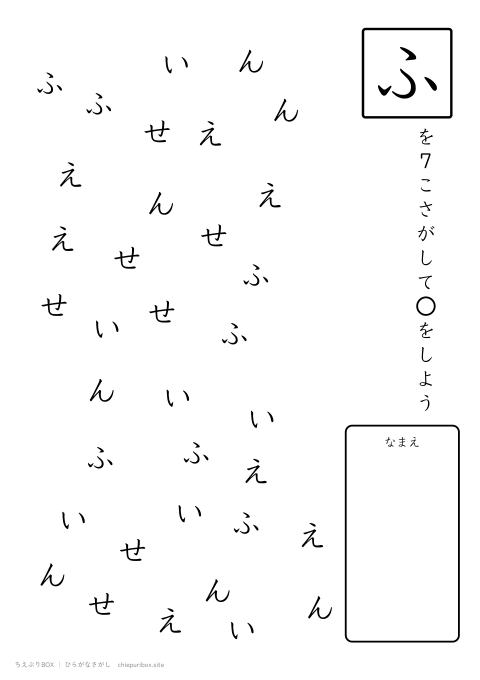 ふ
を7こさがして○をしよう
なまえ
い ん
ふ
ふ ん
せ え
え
ん え
え せ
せ
ふ
せ せ
い ふ
ん い
い
ふ ふ
え
い い ふ
え
せ
ん
せ ん
え い ん
ちえぷりBOX | ひらがなさがし chiepuribox.site